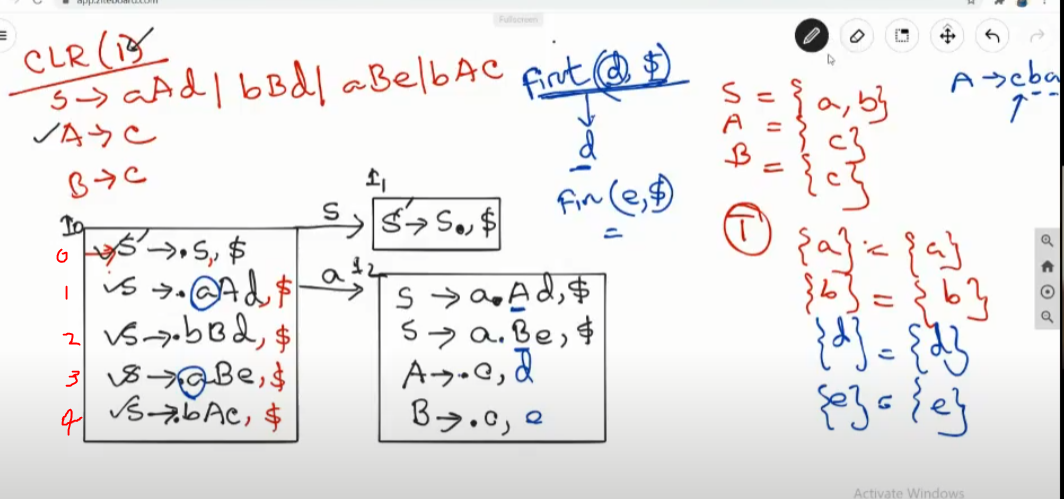 app.ziteboard.com
Fullscreen
CLR (1)
S → aAd | bBd | aBe | bAc
A → C
B → C
first (d, $)
d
Fin (e, $)
=
S = { a, b}
A = { c}
B = { c}
A → cba
T
{a} = {a}
{b} = {b}
{d} = {d}
{e} = {e}
I0
0 S' → .S, $
1 S → .aAd, $
2 S → .bBd, $
3 S → .aBe, $
4 S → .bAc, $
S
I1
S' → S., $
a I2
S → a.Ad, $
S → a.Be, $
A → .c, d
B → .c, e
Activate Windows